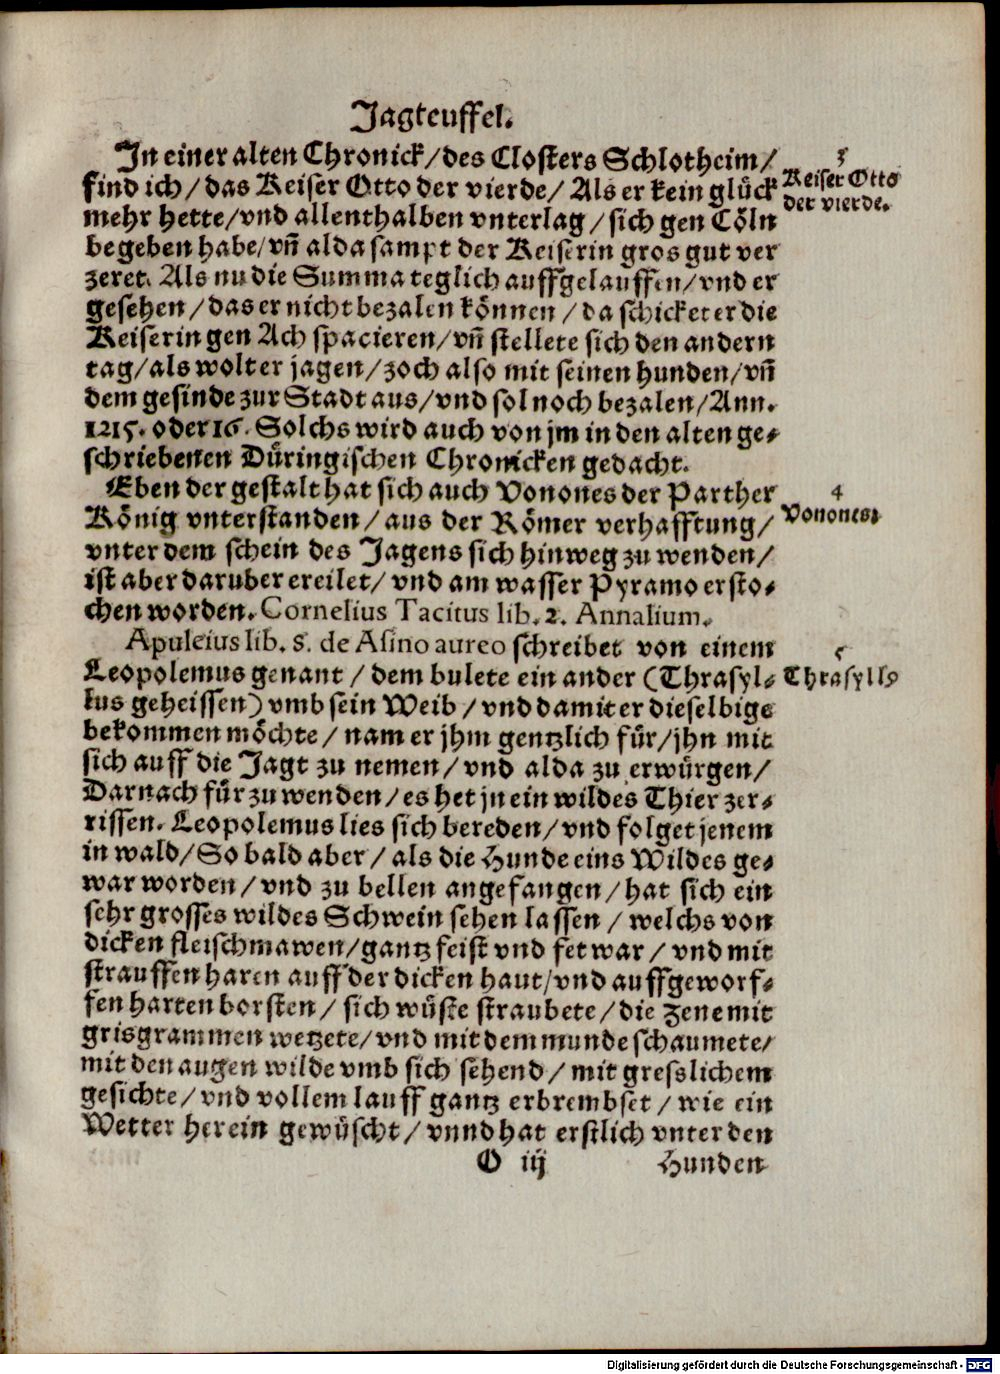 Jagteuffel.
In einer alten Chronick/des Closters Schlotheim/
find ich/das Keiser Otto der vierde/ Als er kein glück
mehr hette/vnd allenthalben vnterlag/sich gen Cöln
begeben habe/vñ alda sampt der Keiserin gros gut ver
zeret. Als nu die Summa teglich auffgelauffen/vnd er
gesehen/das er nicht bezalen können/da schicket er die
Keiserin gen Ach spacieren/vñ stellete sich den andern
tag/als wolt er jagen/zoch also mit seinen hunden/vñ
dem gesinde zur Stadt aus/vnd sol noch bezalen/Ann.
1215. oder 16. Solchs wird auch von jm in den alten ge-
schriebenen Düringischen Chronicken gedacht.
3
Keiser Otto
der vierde.
Eben der gestalt hat sich auch Vonones der Parther
König vnterstanden/aus der Römer verhafftung/
vnter dem schein des Jagens sich hinweg zu wenden/
ist aber daruber ereilet/vnd am wasser Pyramo ersto-
chen worden. Cornelius Tacitus lib. 2. Annalium.
4
Vonones.
Apuleius lib. 8. de Asino aureo schreibet von einem
Leopolemus genant/dem bulete ein ander (Thrasyl-
lus geheissen) vmb sein Weib/vnd damit er dieselbige
bekommen möchte/nam er jhm gentzlich für/jhn mit
sich auff die Jagt zu nemen/vnd alda zu erwürgen/
Darnach für zu wenden/es het jn ein wildes Thier zer-
rissen. Leopolemus lies sich bereden/vnd folget jenem
in wald/So bald aber/als die Hunde eins Wildes ge-
war worden/vnd zu bellen angefangen/hat sich ein
sehr grosses wildes Schwein sehen lassen/welchs von
dicken fleischmawen/gantz feist vnd fet war/vnd mit
strauffen haren auff der dicken haut/vnd auffgeworf-
fen harten borsten/sich wüste straubete/die Zene mit
grisgrammen wetzete/vnd mit dem munde schaumete/
mit den augen wilde vmb sich sehend/mit gresslichem
gesichte/vnd vollem lauff gantz erbrembset/wie ein
Wetter herein gewüscht/vnnd hat erstlich vnter den
5
Thrasyllꝰ
O iij
Hunden
Digitalisierung gefördert durch die Deutsche Forschungsgemeinschaft - DFG